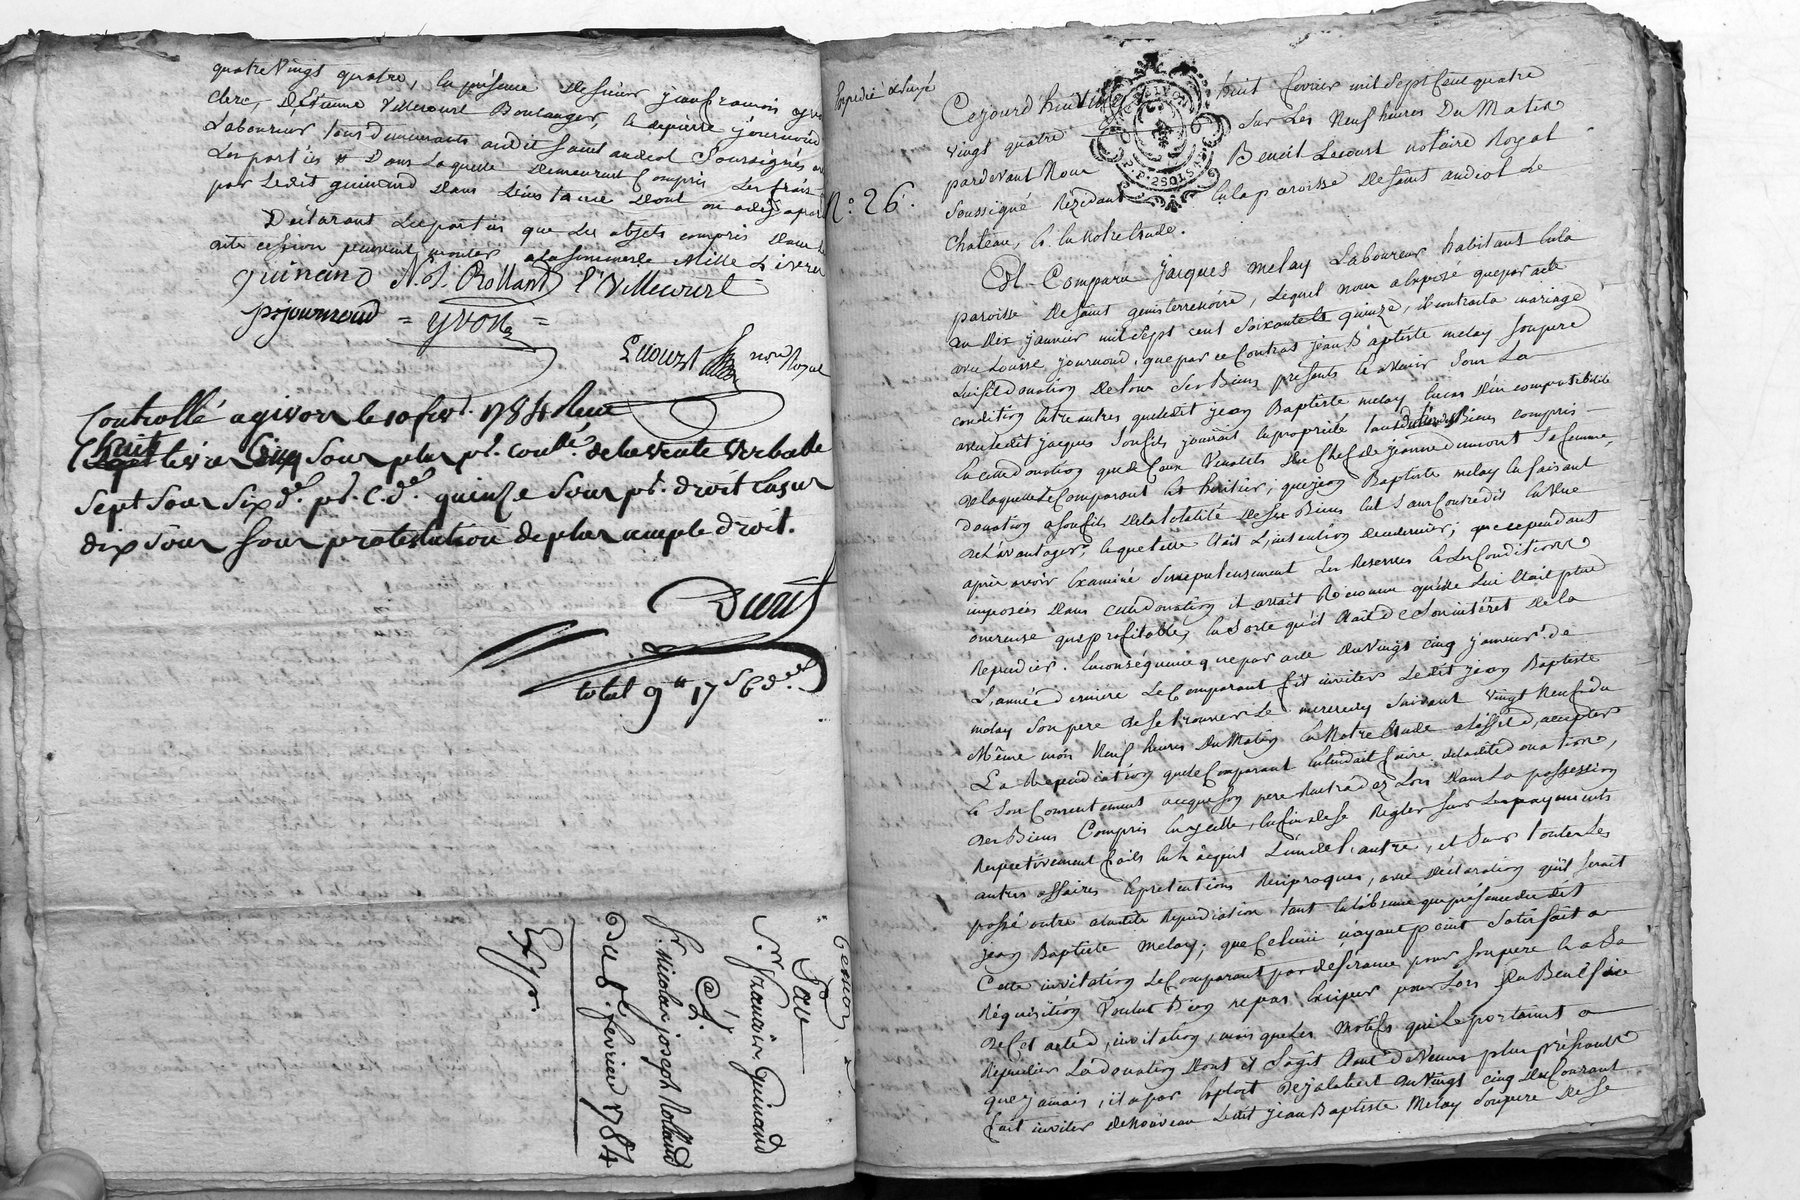 quatre Vingts quatre, En présence de sieur jean francois yvon
Clerc, D'Etienne Villecourt Boulanger, & de pierre journoud
Laboureur, tous demeurants audit saint andeol Soussignés avec
Les parties # Dans Laquelle Demeurent Compris Les frais
par Ledit guinand Dans L'instance Dont on a déja parlé
Déclarant Les parties que Les objets compris Dans la
cession peuvent monter a La somme de Mille Livres
guinand N. J. Rolland E Villecourt
p journoud = yvon =
Lecourt nore Royal
Controllé a givors le 10 fevr. 1784 Recu
huit livres Cinq sous plus pr. conlle. de la vente verbale
Sept sous six d. pr. C. de. quinze sous pr. droit Casuel
dix sous sous protestation de plus ample droit.
Durif
total 9tt 17s 6d.
Cession
Par
Sr. francois Guinand
@
Sr. Nicolas joseph Rolland
Du 8. fevrier 1784
Exp.
Expedié
No. 26.
Cejourd'huy Vingt huit fevrier mil Sept Cent quatre
Vingt quatre Sur Les Neuf heures Du Matin
pardevant Nous Benoit Lecourt notaire Royal
Soussigné Rezidant En la paroisse De saint andeol Le
Chateau, & En Notre Etude.
Est Comparu jacques melay Laboureur habitant En La
paroisse De saint genis terrenoire, Lequel Nous a Exposé que par acte
du dix janvier mil Sept cent Soixante & quinze, il contracta mariage
avec Louise journoud, que par ce Contrat jean Baptiste melay Son pere
Lui fit donation De tous Ses Biens présents & avenir Sous La
condition Entre autres que Ledit jean Baptiste melay En cas D'incompatibilité
avec Ledit jacques Son fils jouirait En propriété Biens compris
En cette donation que de Ceux Venants Du Chef de jeanne dumont Sa femme,
De Laquelle Le Comparant Est héritier, que jean Baptiste melay En faisant
donation a Son fils De La totalité De Ses Biens Eut Sans Contredit En Vue
De L'avantager, & que telle Etait L'intention De ce dernier; que cependant
après avoir Examiné Scrupuleusement Les Reserves & Les Conditions
imposées Dans cette donation il avait Reconnu qu'elle Lui Etait plus
onéreuse que profitable, En Sorte qu'il Etait de Son intérêt De La
Repudier. En conséquence que par acte Du Vingt cinq janvier de
L'année derniere Le Comparant fit inviter Ledit jean Baptiste
melay Son pere De Se trouver Le mercredy Suivant Vingt Neuf du
Même mois Neuf heures Du Matin En Notre Etude a L'effet d'accepter
La Repudiation que Le Comparant Entendait faire De Ladite donation,
& Son Consentement a ce que Son pere Rentra dez Lors Dans La possession
Des Biens Compris En ycelle, En fin de Se Regler Sur Les payements
Respectivement faits En L'acquit L'un de L'autre, et Sur toutes Les
autres affaires & prétentions Réciproques, avec Déclaration qu'il Serait
passé outre a Ladite Repudiation, tant En L'absence que présence du dit
jean Baptiste Melay; que Celui ci n'ayant point Satisfait a
Cette invitation Le Comparant par déférance pour Son pere & a Sa
Réquisition Voulut Bien ne pas Exciper pour Lors Du Benéfice
De Cet acte d'invitation, mais que Les Motifs qui Le portaient a
Répudier La donation Dont il S'agit Etant devenus plus préssants
que jamais, il a par Exploit Du Vingt cinq Du Courant
fait inviter De Nouveau Ledit jean Baptiste Melay Son pere De Se